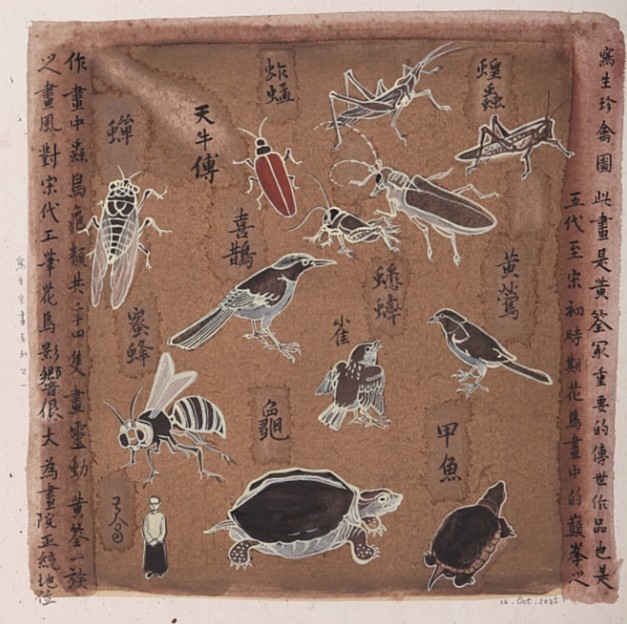 寫生珍禽圖 此畫是黃筌冣重要的傳世作品也是
五代至宋初時期花鳥畫中的巔峯之
作畫中蟲鳥龜類共二十四隻畫靈動黃筌一族
之畫風對宋代工筆花鳥影響很大為畫院正統地位
蝗蟲
蚱蜢
天牛傳
蟬
喜鵲
蟋蟀
黃鶯
雀
蜜蜂
龜
甲魚
16.Oct.2025